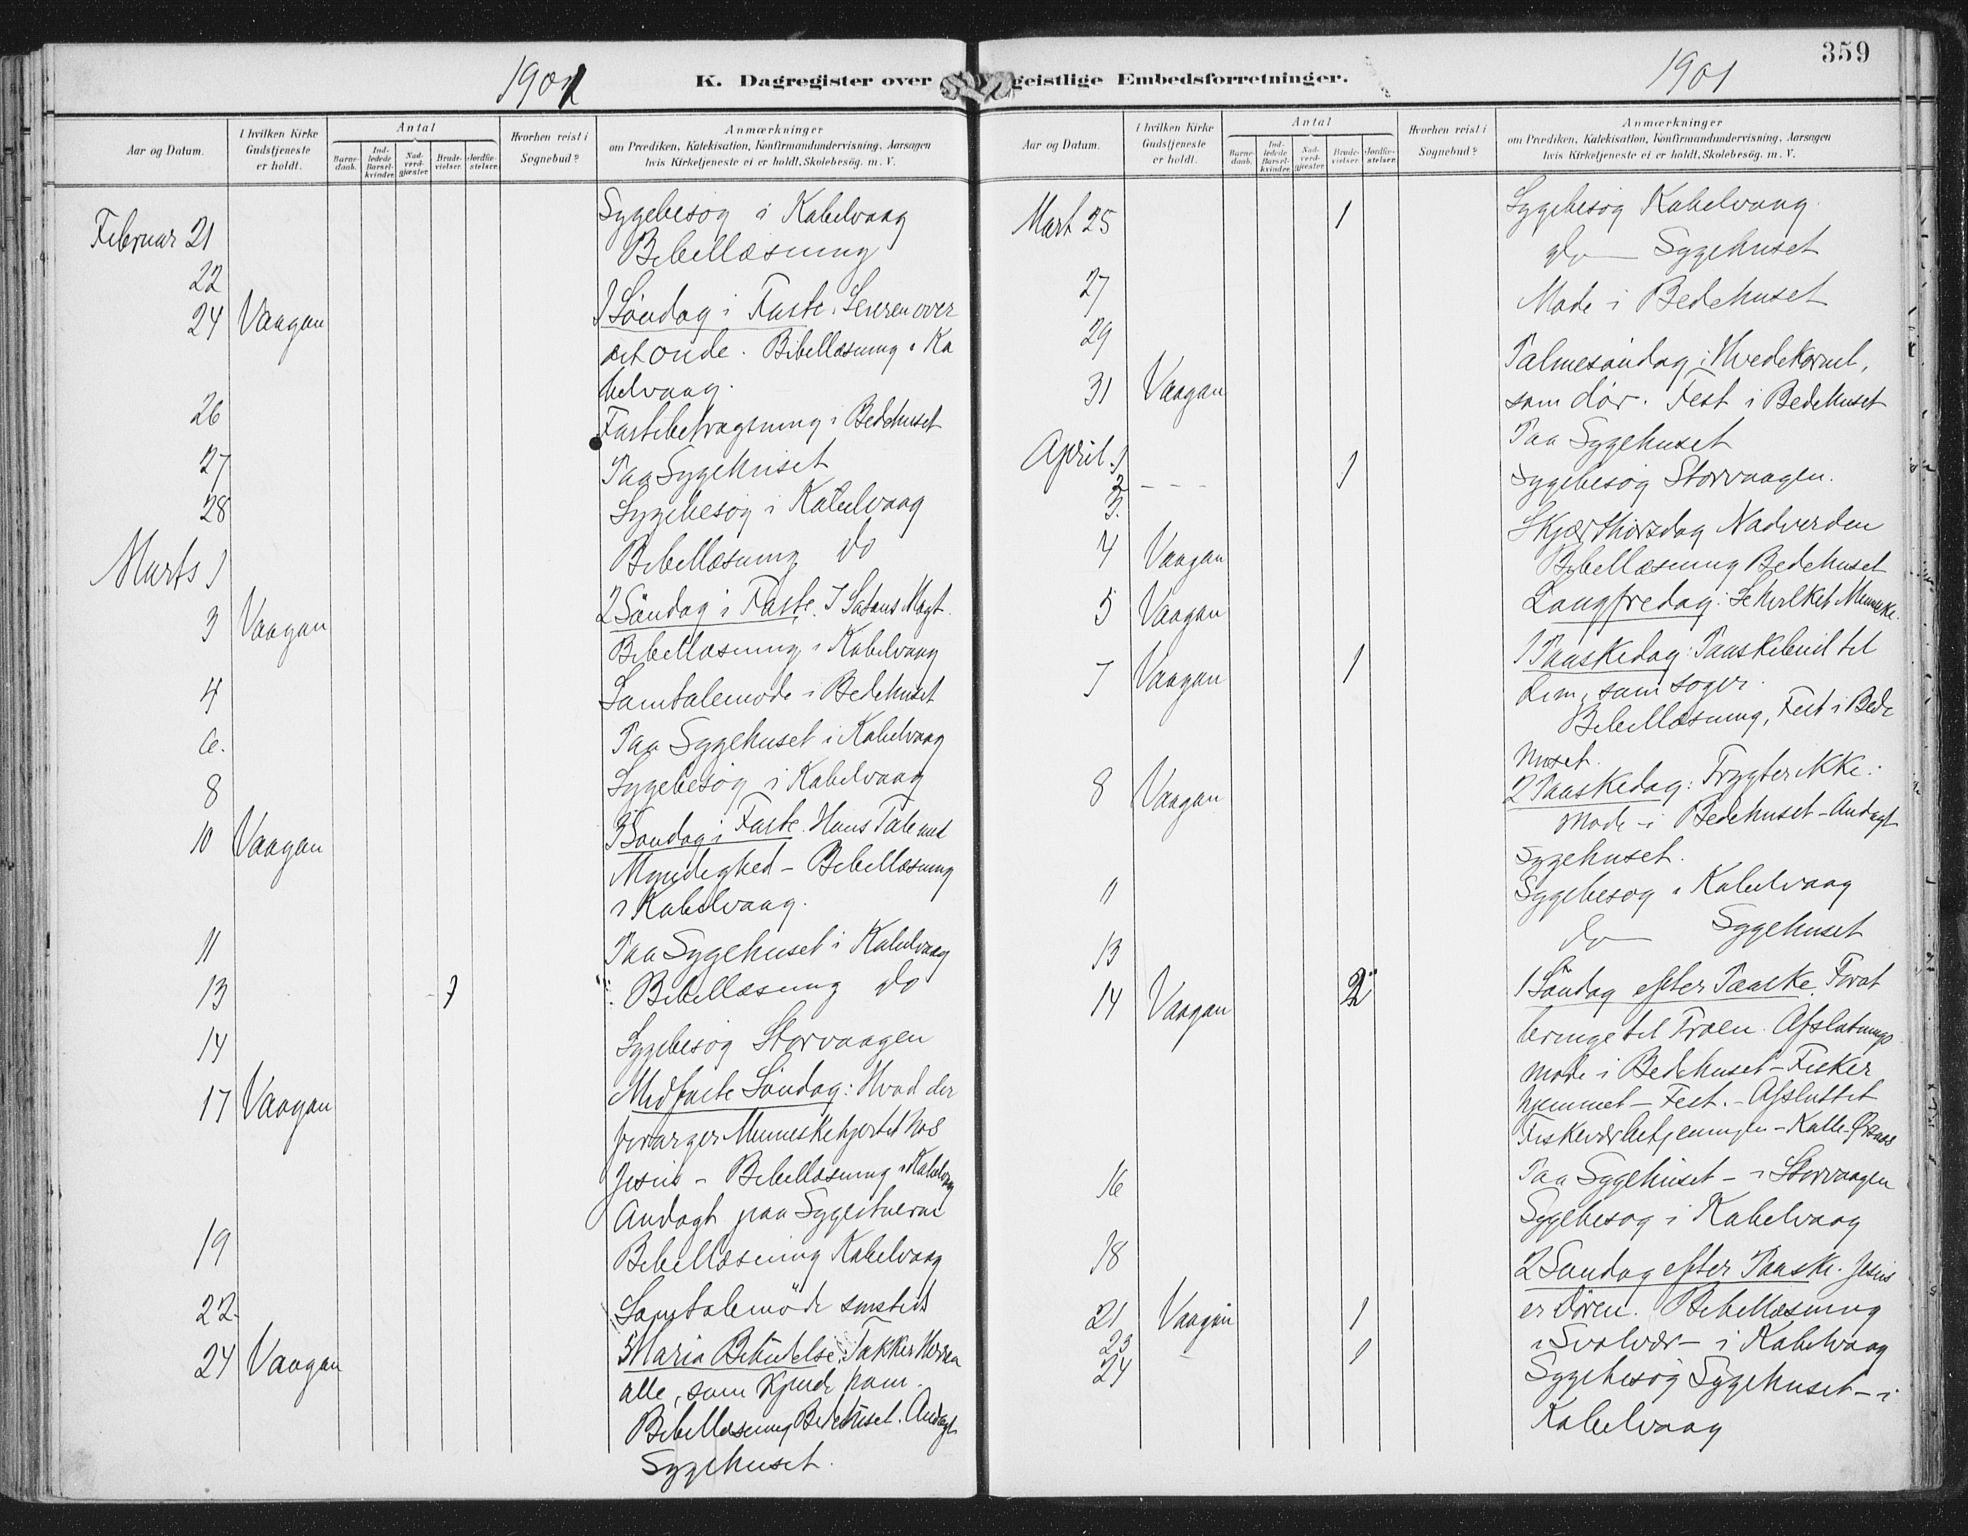 359
1901
K. Dagregister over geistlige Embedsforretninger.
1901
Aar og Datum.
I hvilken Kirke Gudstjeneste er holdt.
Antal
Barnedaab.
Indledede Barselkvinder.
Nadverdgjæster.
Brudevielser.
Jordfæstelser.
Hvorhen reist i Sognebud?
Anmærkninger
om Prædiken, Katekisation, Konfirmandundervisning, Aarsagen
hvis Kirketjeneste ei er holdt, Skolebesøg. m. V.
Februar 21 Sygebesøg i Kabelvaag
22 Bibellæsning
24 Vaagan 1 Søndag i Faste. Seiren over
det onde. Bibellæsning i Ka
belvaag.
26 Fastebetragtning i Bedehuset
27 Paa Sygehuset
28 Sygebesøg i Kabelvaag
Marts 1 Bibellæsning do
3 Vaagan 2 Søndag i Faste. I Satans Magt.
Bibellæsning i Kabelvaag
4 Samtalemøde i Bedehuset
6. Paa Sygehuset i Kabelvaag
8 Sygebesøg i Kabelvaag
10 Vaagan 3 Søndag i Faste. Hans Tale med
Myndighed – Bibellæsning
i Kabelvaag.
11 Paa Sygehuset i Kabelvaag
13 1 Bibellæsning do
14 Sygebesøg Storvaagen
17 Vaagan Midfaste Søndag: Hvad der
forarger Menneskehjertet hos
Jesus – Bibellæsning i Kabelvaag
Andagt paa
19 Bibellæsning Kabelvaag
22 Samtalemøde smsteds
24 Vaagan Maria Bebudelse. Takker Herren
alle, som kjende ham.
Bibellæsning Bedehuset. Andagt
Sygehuset.
Aar og Datum.
I hvilken Kirke Gudstjeneste er holdt.
Antal
Barnedaab.
Indledede Barselkvinder.
Nadverdgjæster.
Brudevielser.
Jordfæstelser.
Hvorhen reist i Sognebud?
Anmærkninger
om Prædiken, Katekisation, Konfirmandundervisning, Aarsagen
hvis Kirketjeneste ei er holdt, Skolebesøg. m. V.
Mart 25 1 Sygebesøg Kabelvaag.
27 do – Sygehuset
29 Møde i Bedehuset
31 Vaagan Palmesøndag: Hvedekornet,
som dør. Fest i Bedehuset
April 1 1 Paa Sygehuset
2 – – –
3. Sygebesøg Storvaagen.
4 Vaagan Skjærthorsdag Nadverden
Bibellæsning Bedehuset
5 Vaagan Langfredag: Se hvilket Menneske.
7 Vaagan 1 1 Paaskedag: Paaskebud til
dem, som søger.
Bibellæsning, Fest i Bede
huset.
8 Vaagan 2 Paaskedag: Frygter ikke.
Møde i Bedehuset – Andagt
Sygehuset.
11 Sygebesøg i Kabelvaag
13 do – Sygehuset
14 Vaagan 2 1 Søndag efter Paaske. For at
bringe til Troen. Afslutnings
møde i Bedehuset – Fisker
hjemmet – Fest. – Afsluttet
Fiskeværbetjeningen – Kalle
16 Paa Sygehuset – i Storvaagen
18 Sygebesøg i Kabelvaag
21 Vaagan 1 2 Søndag efter Paaske. Jesus
er Døren. Bibellæsning
i Svolvær – i Kabelvaag
23 – 1
24 Sygebesøg Sygehuset – i
Kabelvaag